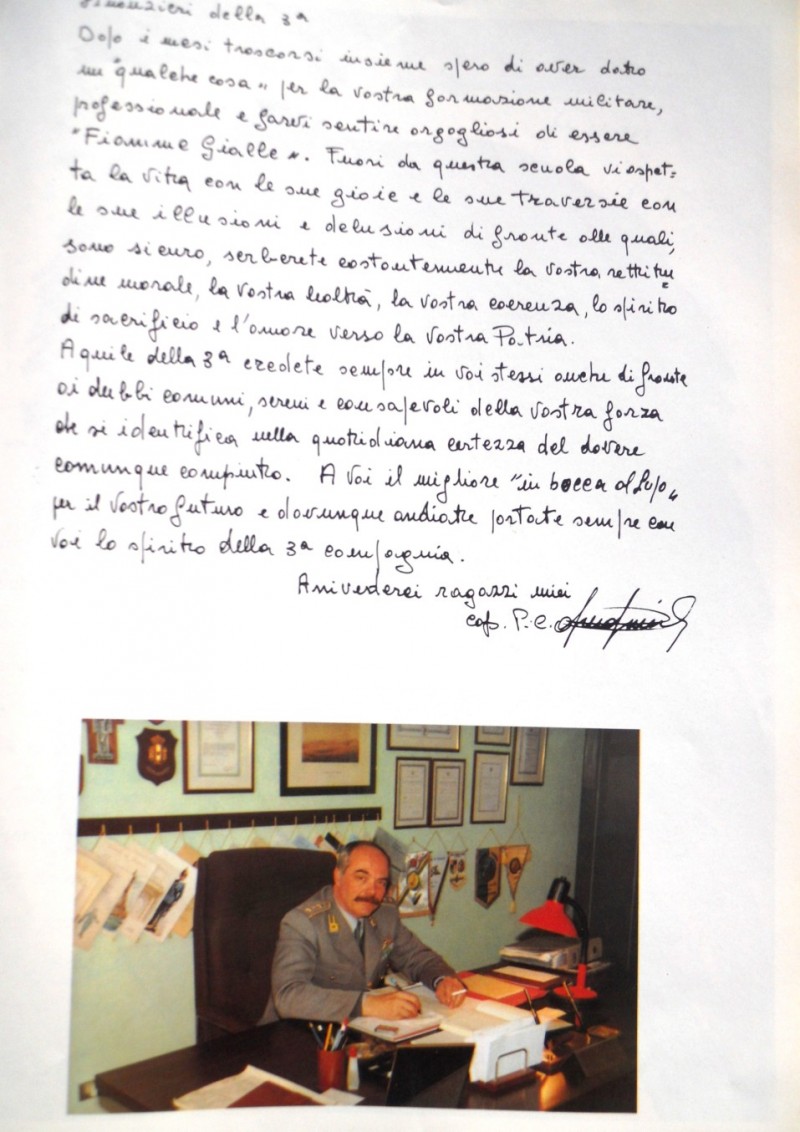 Finanzieri della 3ª
Dopo i mesi trascorsi insieme spero di aver dato
un "qualche cosa" per la vostra formazione militare,
professionale e farvi sentire orgogliosi di essere
"Fiamme Gialle". Fuori da questa scuola vi aspet=
ta la vita con le sue gioie e le sue traversie con
le sue illusioni e delusioni di fronte alle quali,
sono sicuro, serberete costantemente la vostra rettitu=
dine morale, la vostra lealtà, la vostra coerenza, lo spirito
di sacrificio e l'amore verso la vostra Patria.
Aquile della 3ª credete sempre in voi stessi anche di fronte
ai dubbi comuni, sereni e consapevoli della vostra forza
che si identifica nella quotidiana certezza del dovere
comunque compiuto. A voi il migliore "in bocca al lupo"
per il vostro futuro e dovunque andiate portate sempre con
voi lo spirito della 3ª compagnia.
Arrivederci ragazzi miei
cap. P.C.